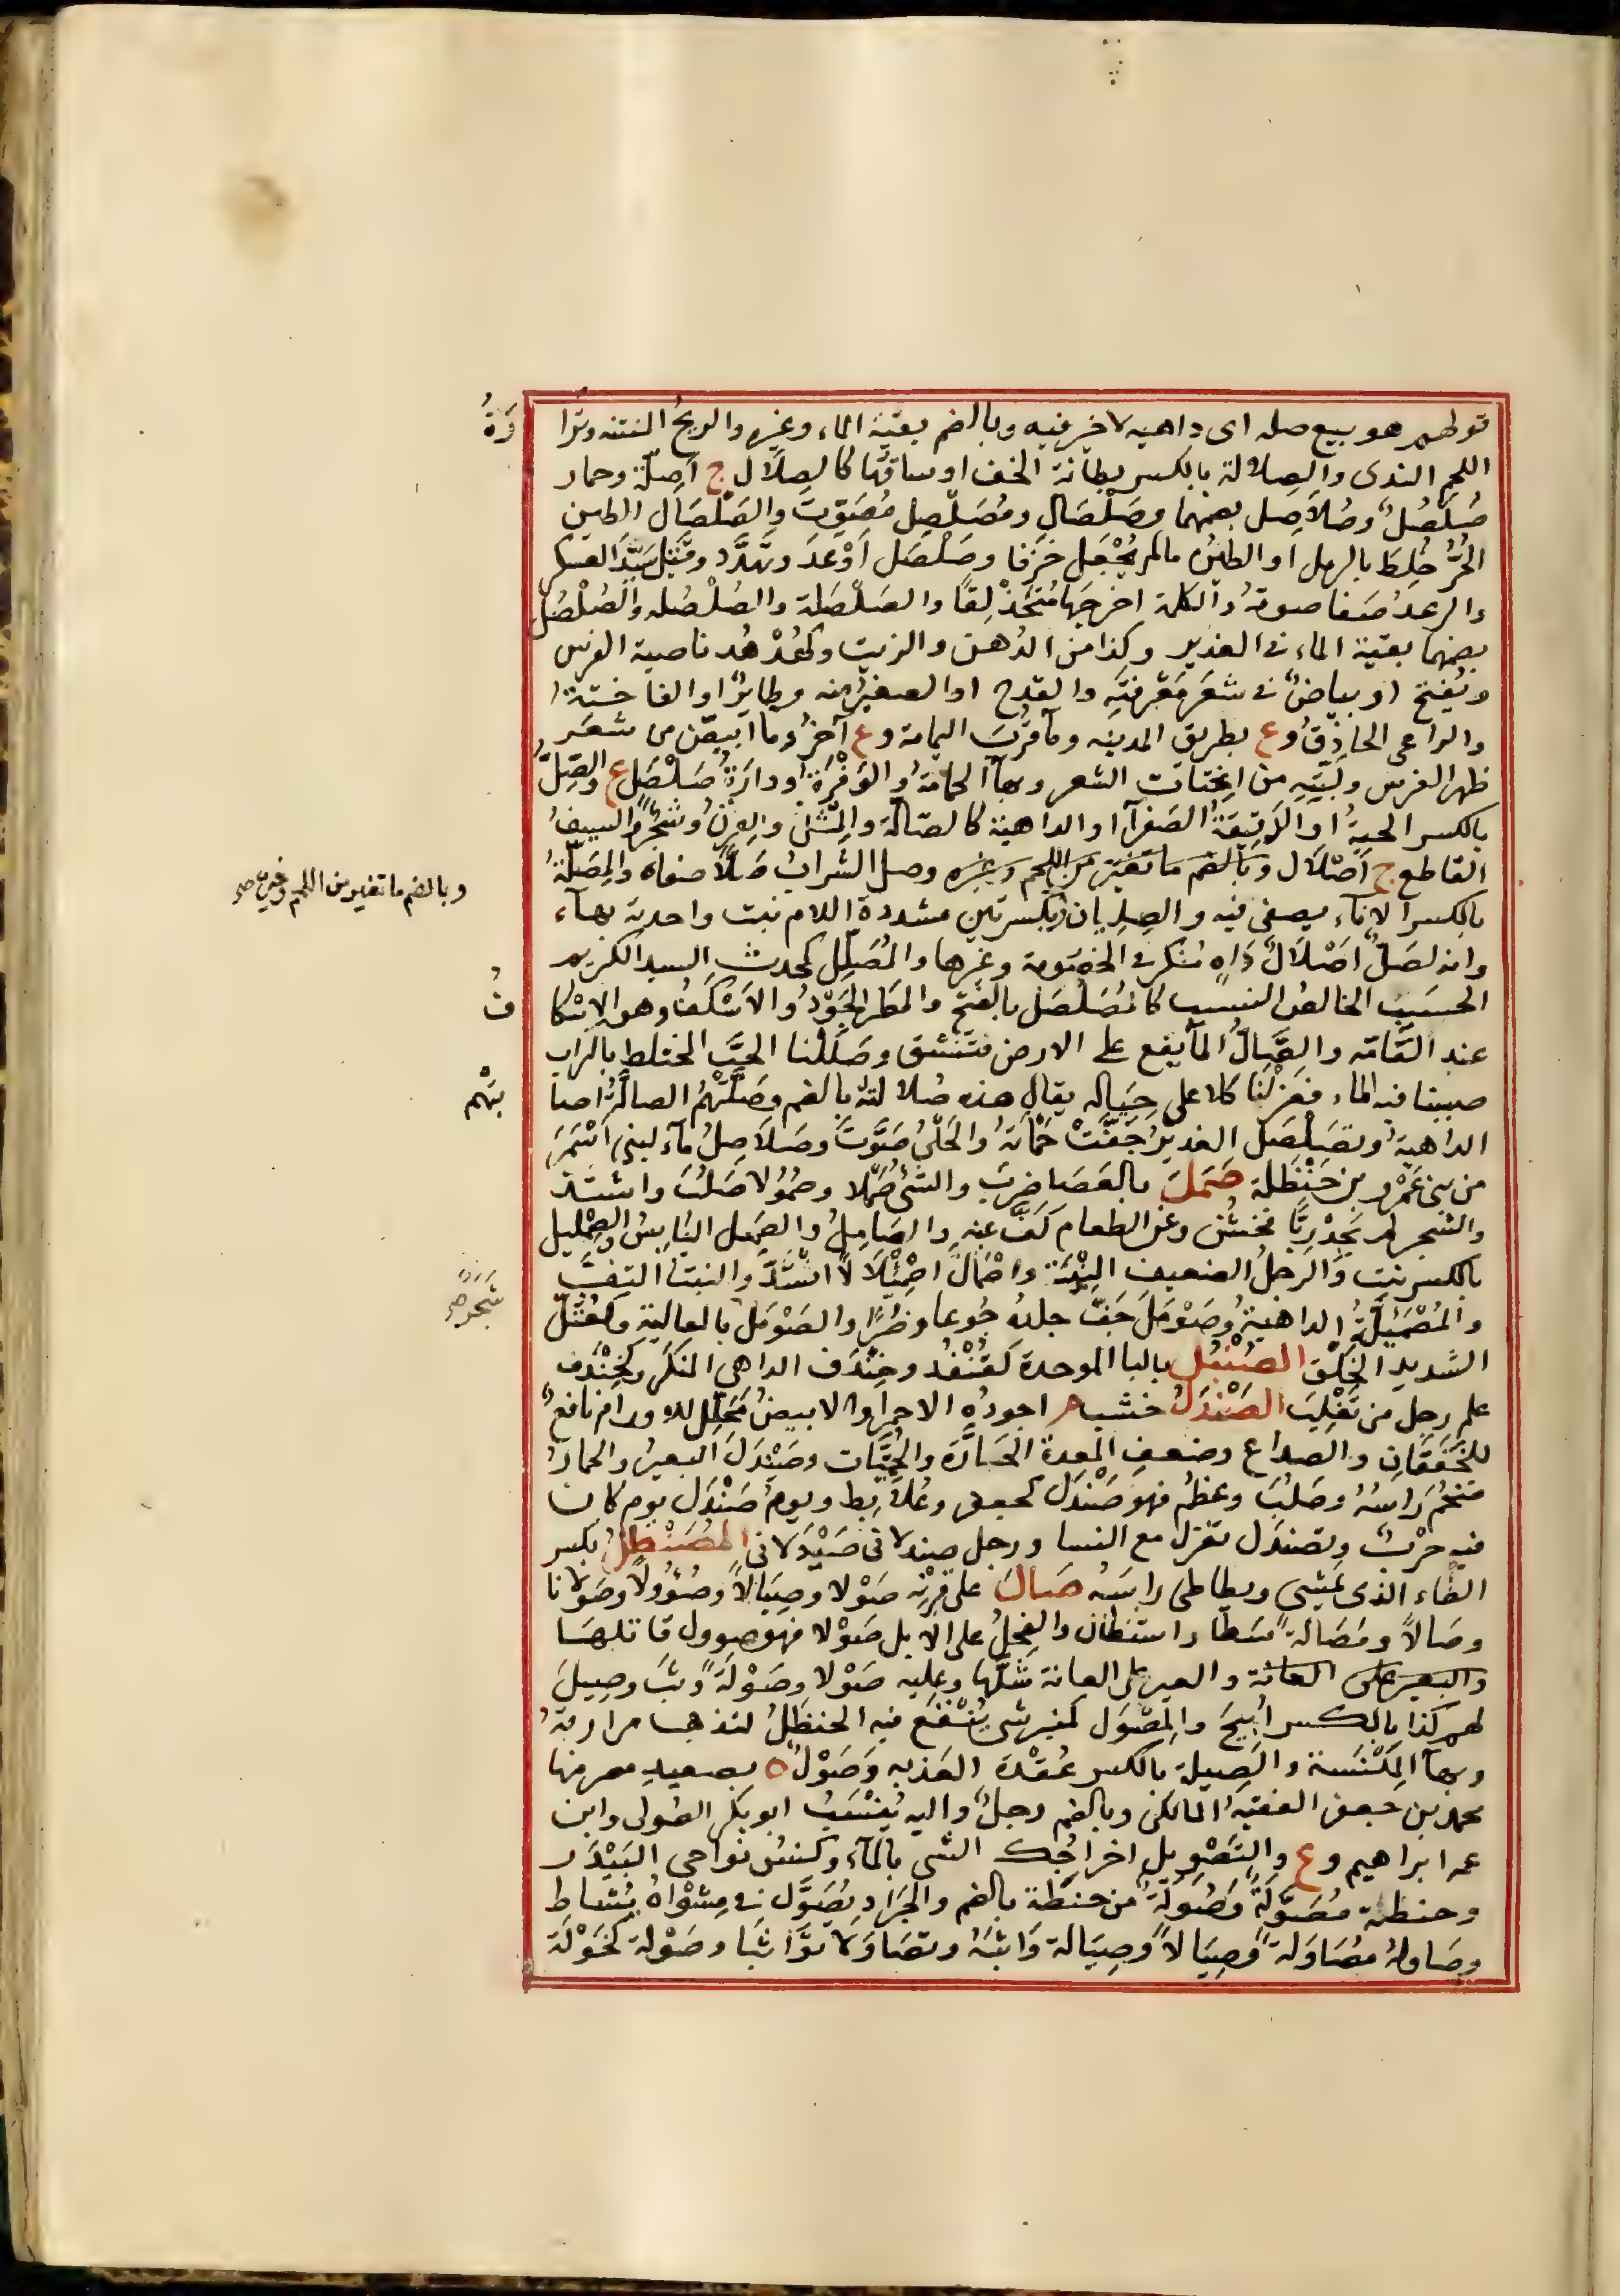 قولهم هو بيع صله اى داهيه لا خير فيه وبالضم بقيّة الماء وغيره والريحُ المنتنه وترا
رَةُ
اللحم الندى والصِلالة بالكسر بطانة الخف او ساقُها كالصِلاَل ج أَصِلّة وحمار
صُلْصُلٌ وصُلاَصِل بضمهما وصَلْصَال ومُصَلْصِل مُصَوِّتٌ والصَلْصَال الطين
الحُرُّ خُلِطَ بالرمل او الطينُ مالم يُجْعَل خزفا وصَلْصَل أَوْعَدَ وتهدَّد وقَتَل سَيِّدَ العسكر
والرعدُ صَفا صوته والكلمة اخرجها مُتَحَذْلِقًا والصَلْصَلة والصُلْصُله والصُلْصُل
بضمهما بقيّة الماء فى الغدير وكذا من الدُهن والزيت وكهُدْهُد ناصية الفرس
ويُفتح او بياضٌ فى شعَر مَعْرفتِه والقدح او الصغيرُ منه وطايرٌ او الفاختةُ
والراعى الحاذقُ و ع بطريق المدينه ومآ قُربَ اليمامة و ع آخرُ وما ابيضّ من شعَر
ظهر الفرس ولَبَّتِهِ من انحِتات الشعر وبهآ الحمامةُ والوَفْرَةُ ودارَةُ صَلْصَل ع والصِلُّ
بالكسر الحيةُ او الدَقيقةُ الصَفرآ او الداهيةُ كالصآلّة والمِثلُ والقِرنُ وشجرٌ والسيفُ
القاطع ج أَصْلاَل وبالضم ما تغيّر من اللحم وغيره وصل الشرابَ صَلاًّ صفاه والمِصَلّةُ
وبالضم ما تغير من اللحم وغيره صح
بالكسر الاناء يصفى فيه والصِلِيان بكسرتين مشددة اللام نبت واحدته بهآء
وانه لصَلُّ اصْلاَلٍ دَاهٍ مُنكَر فى الخصُومة وغيرها والمُصَلِّل كمحدث السيد الكريم
الحسَيبُ الخالصُ النسب كالمُصَلْصَل بالفتح والمطر الجَوْدُ والاَسْكَفُ وهو الاِسْكا
فُ
عند العَامّه والصَّالُّ المآ يقع على الارض فتنشق وصَلَلْنا الحبَّ المختلط بالتراب
صببنا فيه الماء فعزلْنا كلا على حِيَاله يقال هذه صُلالتهُ بالضم وصَلَّتْهُمُ الصالَّةُ اصا
بَتْهم
الداهيةُ وتصَلْصَلَ الغديرُ جَفَّتْ حَمْأَتُه والحَلْىُ صَوَّتَ وصَلاَصِلُ مآء لبنى اَسْمَرَ
من بنى عَمْرو بن حَنْظلة صَمَلَ بالعَصَا ضرَبَ والشئُ صَمْلا وصُمُوْلا صَلُبَ واشتدّ
والشجر لم يَجدْ ريّا فخشُن وعن الطعام كَفَّ عنه والصَامِلُ والصَمِيل اليَابِسُ والصِمْلِيل
بالكسر نبت والرجلُ الضعيف البِنْيَة واصْمَألَّ اصْمِئْلاَلاً اشتدّ والنبتُ التفَّ
شَجَرَةٌ صح
والمُصْمَئِلَّةُ الداهيةُ وصَوْمَلَ جَفَّ جلدُهُ جُوعا وضُرًّا والصَوْمَلُ بالعالية وكعُتُلّ
الشديد الخَلْق الصُنْبُل بالبا الموحدة كقُنْفُد وخِنْدَف الداهى المنكَر وكخِنْدَف
علم رجل من تَغْلِبَ الصَنْدَلُ خشب م اجودُه الاحمرُ او الابيضُ مُحَلِّل للاورام نافعٌ
للخفَقَانِ والصداع وضعفِ المعدة الحَارَّة والحُمَّيَات وصَنْدَلَ البعيرُ والحمارُ
ضخُم رَاسُهُ وصَلُبَ وعظُم فهوَ صَنْدَل كجعفر وعُلابِط ويومُ صَنْدَل يوم كان
فيه حرْبٌ وتصَنْدَل تغزل مع النسا ورجل صندلانى صَيْدَلانى المُصَنْطِلُ بكسر
الطاء الذى يَمْشِى ويطاطئ راسَه صَالَ على قِرْنِه صَوْلا وصِيَالاً وصُؤُولاً وصَوَلانا
وصَالاً ومَصَالةً سَطا واستطال والفحلُ على الابل صَوْلا فهو صوول قاتلهَا
والبعير على العانة والعير على العانة شلَّها وعليه صَوْلا وصَوْلَةً وثَبَ وصِيلَ
لهم كذا بالكسر اُتِيحَ والمِصْوَل كمنبر شى يُنْقَع فيه الحنظَلُ لتذهب مرارتهُ
وبهآ المِكْنَسة والصِيلة بالكسر عُقْدة العَذَبه وَصَوْلٌ ه بصعيدِ مصر منها
محمد بن جعفر الفقيهُ المالكى وبالضم رجلٌ واليه يُنسَبُ ابو بكر الصُولى وابن
عمه ابراهيم و ع والتَصْوِيل اخراجُك الشى بالمآء وكنسُ نواحى البَيْدَر
وحنطة مُصَوَّلةٌ وصُولَةٌ من حنطة بالضم والجَرَاد يُصَوَّل فى مِشْوَاهُ يُشاط
وصَاولهُ مصَاوَلة وصِيَالاً وصِيَالة وَاثبَهُ وتصَاوَلا توَاثبَا وصَوْلة كخَوْلَة